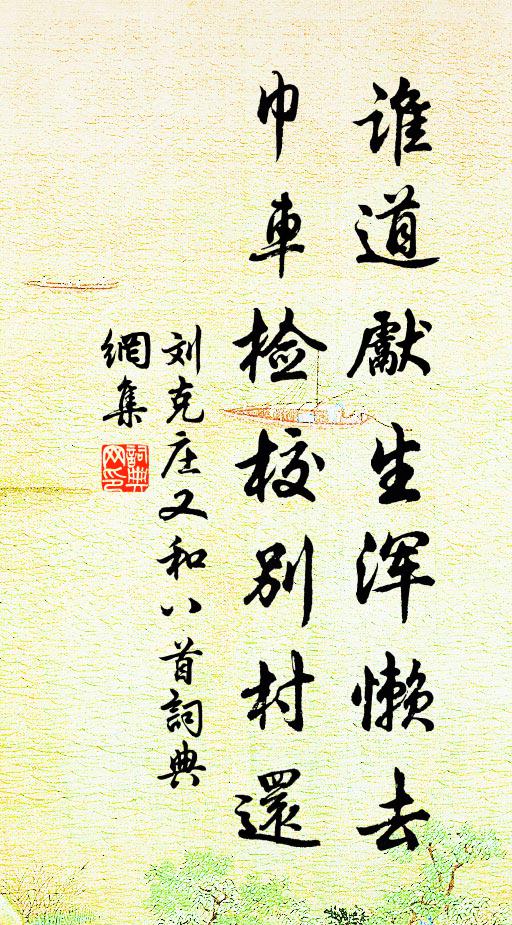 谁道獻生浑懒去
巾車检校别村還
刘克庄又和八首詞典
網集
詞典網印